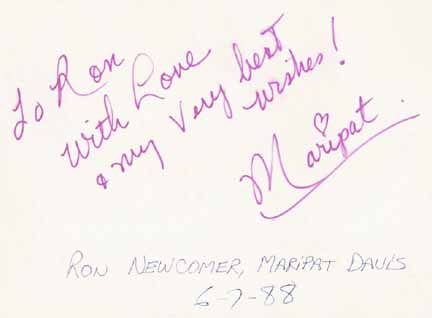 To Ron
With Love
& my Very best
wishes!
Maripat
RON NEWCOMER, MARIPAT DAVIS
6-7-88